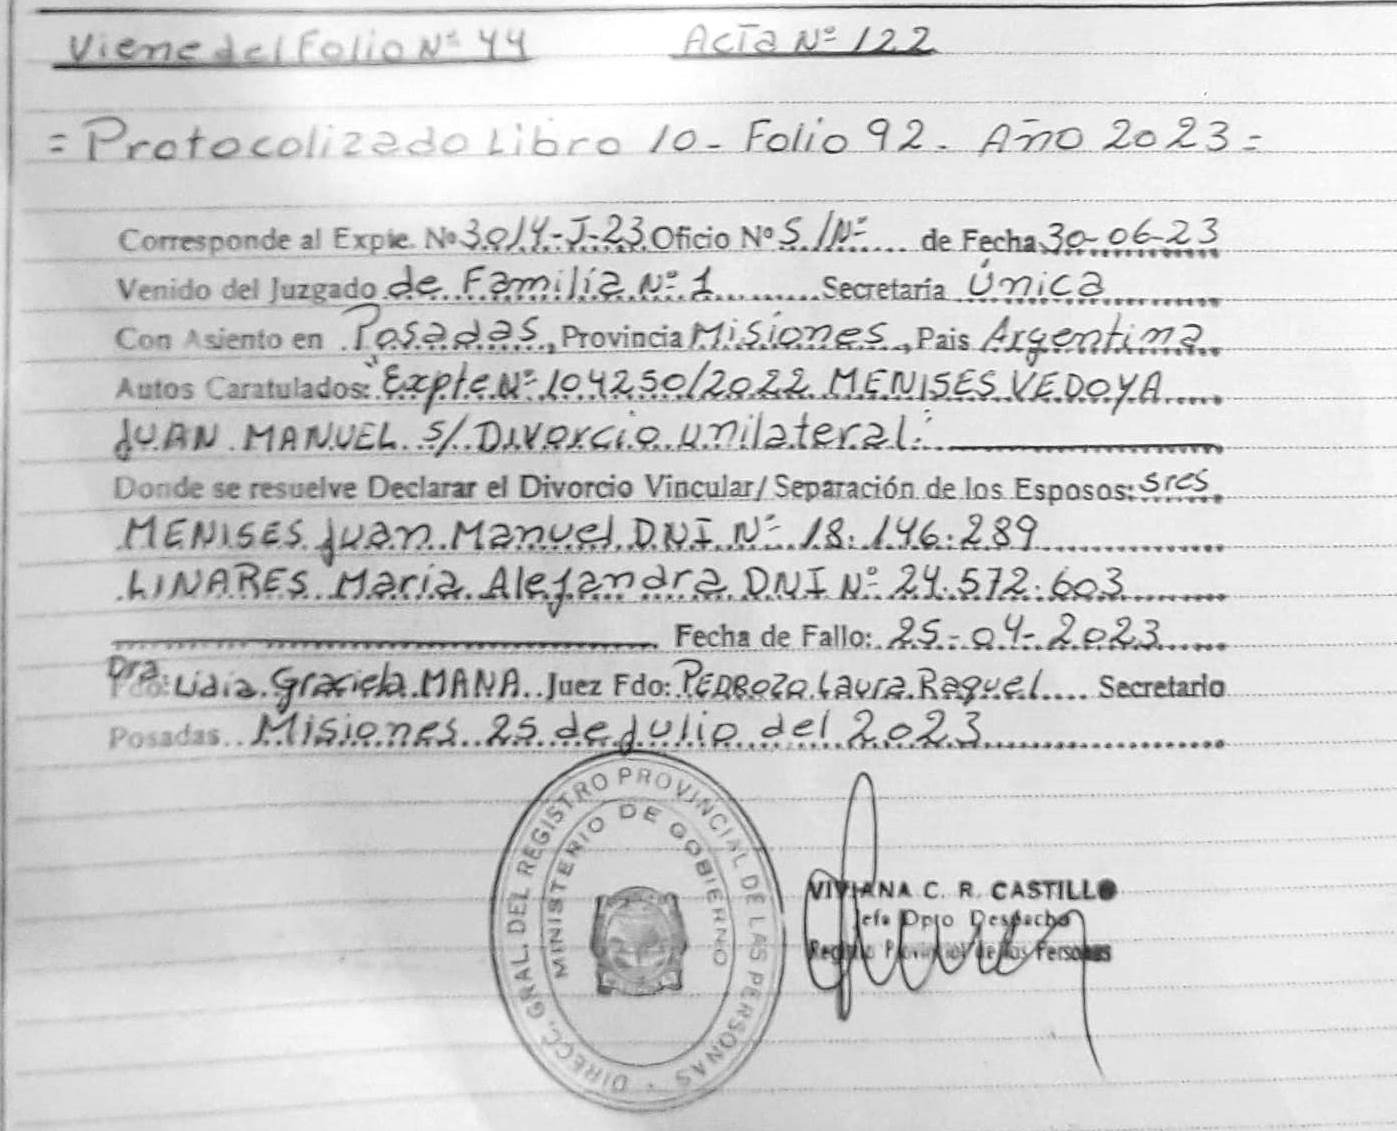 Viene del Folio Nº 44 Acta Nº 122
= Protocolizado Libro 10 - Folio 92 - Año 2023 =
Corresponde al Expte. Nº 3014-J-23 Oficio Nº S/Nº de Fecha 30-06-23
Venido del Juzgado de Familia Nº 1 Secretaría Única
Con Asiento en Posadas, Provincia Misiones, Pais Argentina
Autos Caratulados: "Expte Nº 104250/2022 MENISES VEDOYA
JUAN MANUEL s/ Divorcio unilateral."
Donde se resuelve Declarar el Divorcio Vincular/ Separación de los Esposos: sres
MENISES Juan Manuel DNI Nº 18.146.289
LINARES Maria Alejandra DNI Nº 24.572.603
Fecha de Fallo: 25-04-2023
Fdo: Dra Lidia Graciela MANA Juez Fdo: PEDROZO Laura Raquel Secretario
Posadas Misiones 25 de Julio del 2023
DIRECC. GRAL. DEL REGISTRO PROVINCIAL DE LAS PERSONAS
MINISTERIO DE GOBIERNO
VIVIANA C. R. CASTILLO
Jefe Dpto Despacho
Registro Provincial de las Personas